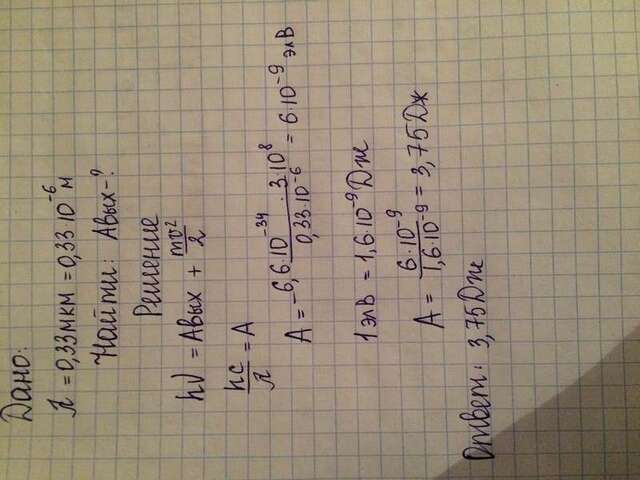 Дано:
λ = 0,33 мкм = 0,33 10⁻⁶ м
Найти: Aвых-?
Решение
hν = Aвых + mv²/2
hc/λ = A
A = 6,6·10⁻³⁴·3·10⁸/0,33·10⁻⁶ = 6·10⁻⁹ элВ
1элВ = 1,6·10⁻⁹ Дж
A = 6·10⁻⁹/1,6·10⁻⁹ = 3,75 Дж
Ответ: 3,75 Дж